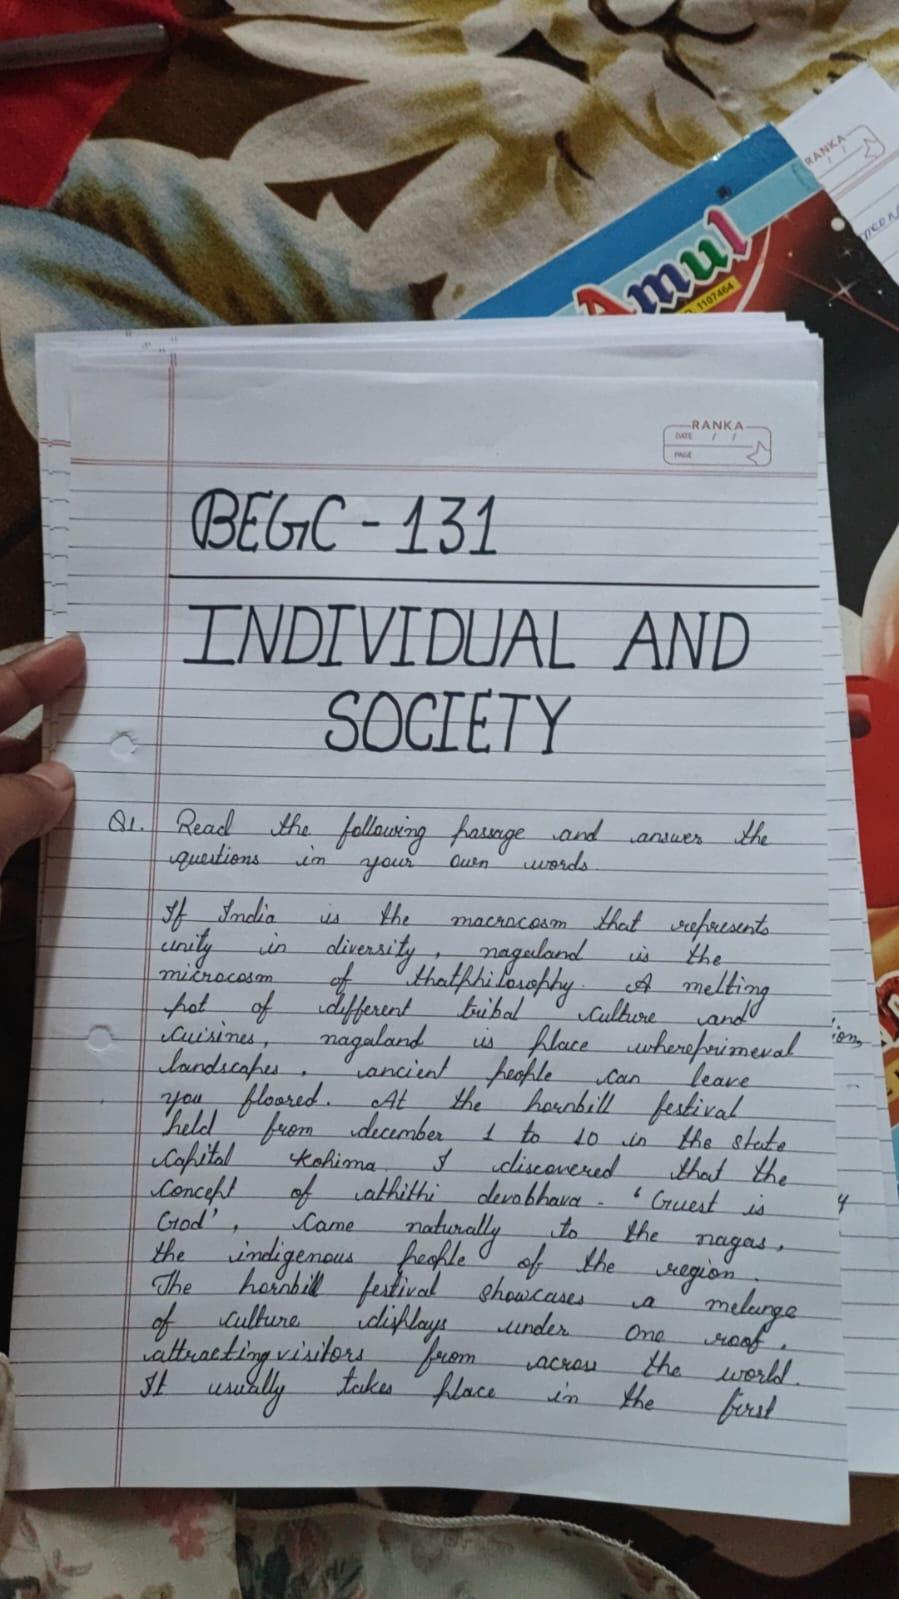 RANKA
Amul
1107464
RANKA
DATE / /
PAGE
BEGC-131
INDIVIDUAL AND
SOCIETY
Q1. Read the following passage and answer the
questions in your own words.
If India is the macrocosm that represents
unity in diversity, nagaland is the
microcosm of thatphilosophy. A melting
pot of different tribal culture and
cuisines, nagaland is place whereprimeval
landscapes, ancient people can leave
you floored. At the hornbill festival
held from december 1 to 10 in the state
capital kohima. I discovered that the
concept of athithi devobhava - 'Guest is
God', came naturally to the nagas,
the indigenous people of the region.
The hornbill festival showcases a melange
of culture displays under one roof,
attractingvisitors from across the world.
It usually takes place in the first